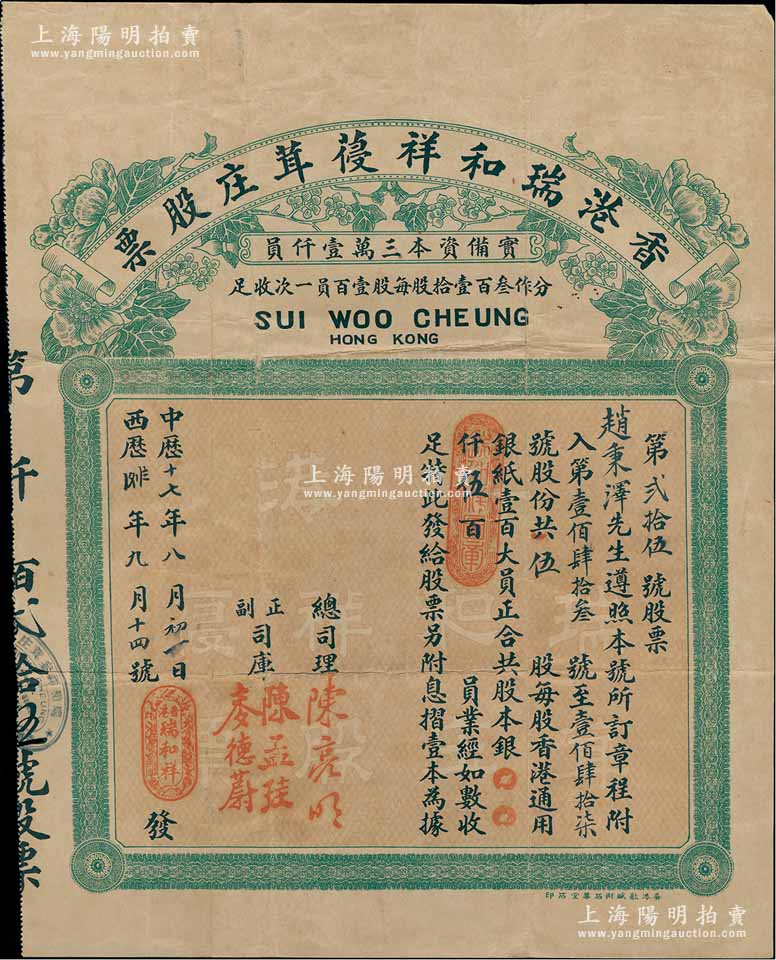 上海陽明拍賣
www.yangmingauction.com
上海陽明拍賣
www.yangmingauction.com
香港瑞和祥葠茸庄股票
實備資本三萬壹仟員
分作叁百壹拾股每股壹百員一次收足
SUI WOO CHEUNG
HONG KONG
第弍拾伍號股票
趙秉澤先生遵照本號所訂章程附
入第壹佰肆拾叁號至壹佰肆拾柒
號股份共伍股每股香港通用
銀紙壹百大員正合共股本銀〇〇
仟伍百員業經如數收
足茲此發給股票另附息摺壹本為據
總司理 陳亮明
正副司庫 陳孟珪
麥德蔚
中歷十七年八月初一日
西歷年九月十四號
香港瑞和祥
發
第仟佰弍拾伍號股票
上海陽明拍賣
www.yangmingauction.com
上海陽明拍賣
www.yangmingauction.com